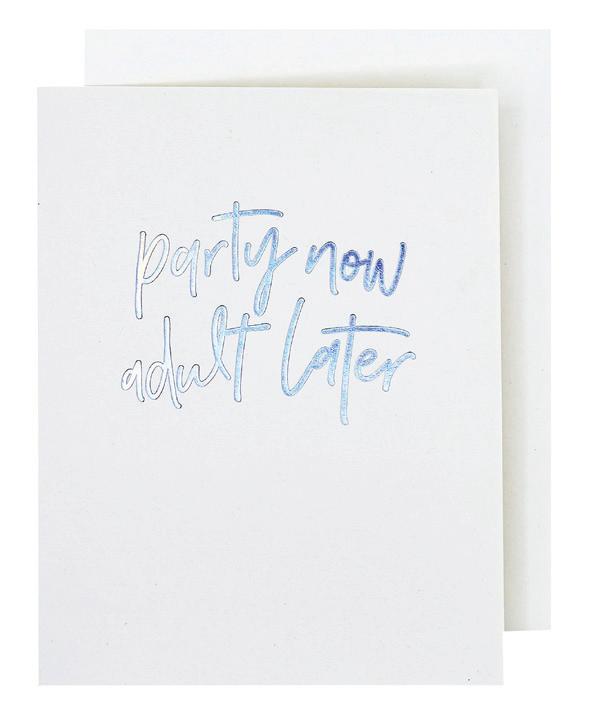 party now
adult later